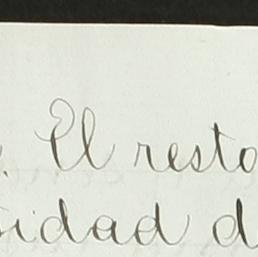 . El resto
sidad d